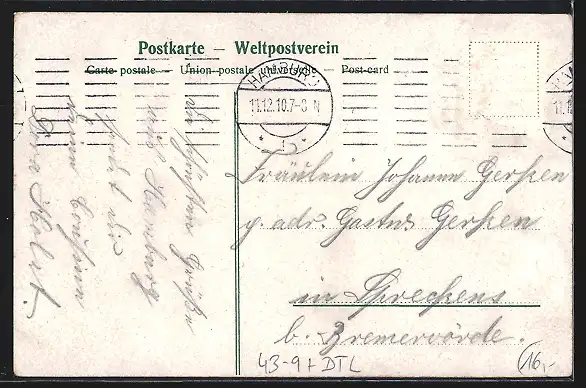 Postkarte — Weltpostverein
Carte postale — Union postale universelle — Post-card
HAMBURG
11.12.10.7-8 N
* 1 *
11.1
die schönsten Grüße
aus Hamburg
sendet dir
deine Cousine
Dora
Fräulein Johanne Gerken
p. adr. Gastw. Gerken
in
b. Bremervörde.
43-9+DTL
16,-